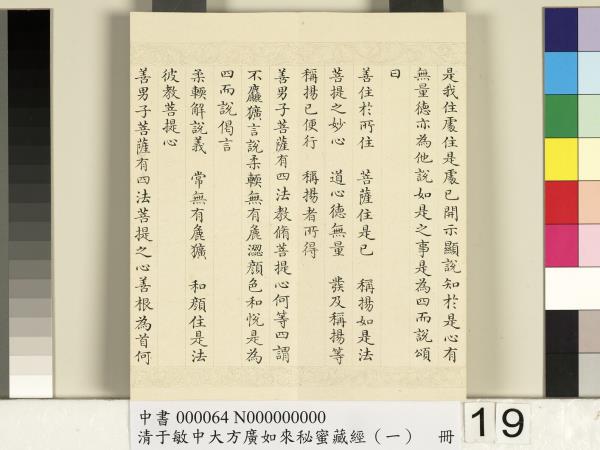 是我住處住是處已開示顯說知於是心有
無量德亦為他說如是之事是為四而說頌
曰
善住於所住 菩薩住是已 稱揚如是法
菩提之妙心 道心德無量 發及稱揚等
稱揚已便行 稱揚者所得
善男子菩薩有四法教脩菩提心何等四謂
不麤獷言說柔輭無有麁澀顏色和悅是為
四而說偈言
柔輭解說義 常無有麁獷 和顏住是法
彼教菩提心
善男子菩薩有四法菩提之心善根為首何
中書 000064 N000000000
清于敏中大方廣如來秘蜜藏經（一） 冊
19